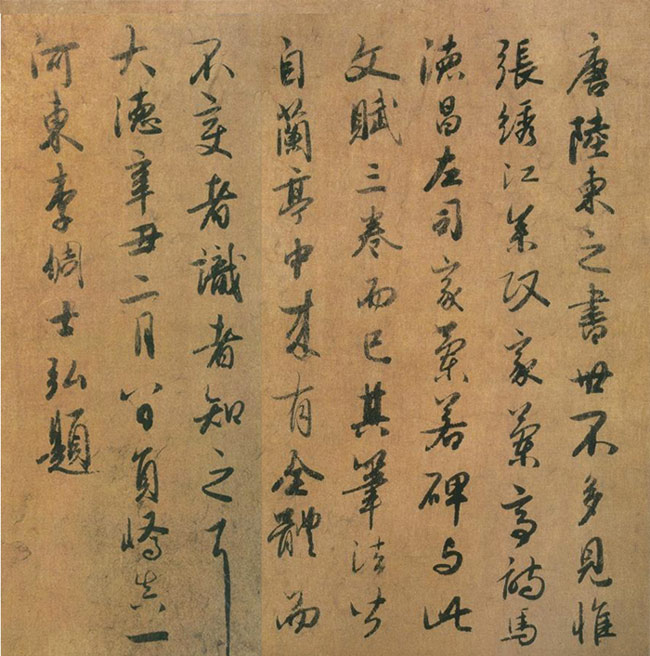 唐陸柬之書世不多見惟
張綉江参政家蘭亭詩馬
德昌左司家蘭若碑与此
文賦三卷而已其筆法皆
自蘭亭中來有全體而
不变者識者知之耳
大德辛丑二月八日員嶠真一
河東李倜士弘題